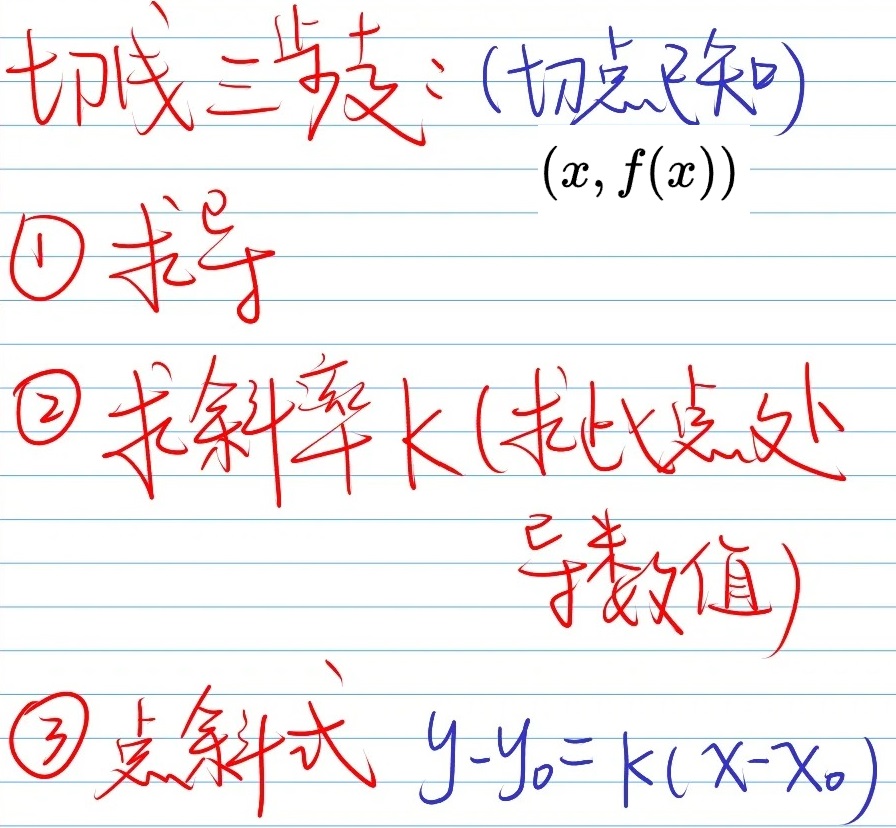 切线三步走：(切点已知)
(x, f(x))
① 求导
② 求斜率k(求此点处
导数值)
③ 点斜式 y-y₀=k(x-x₀)